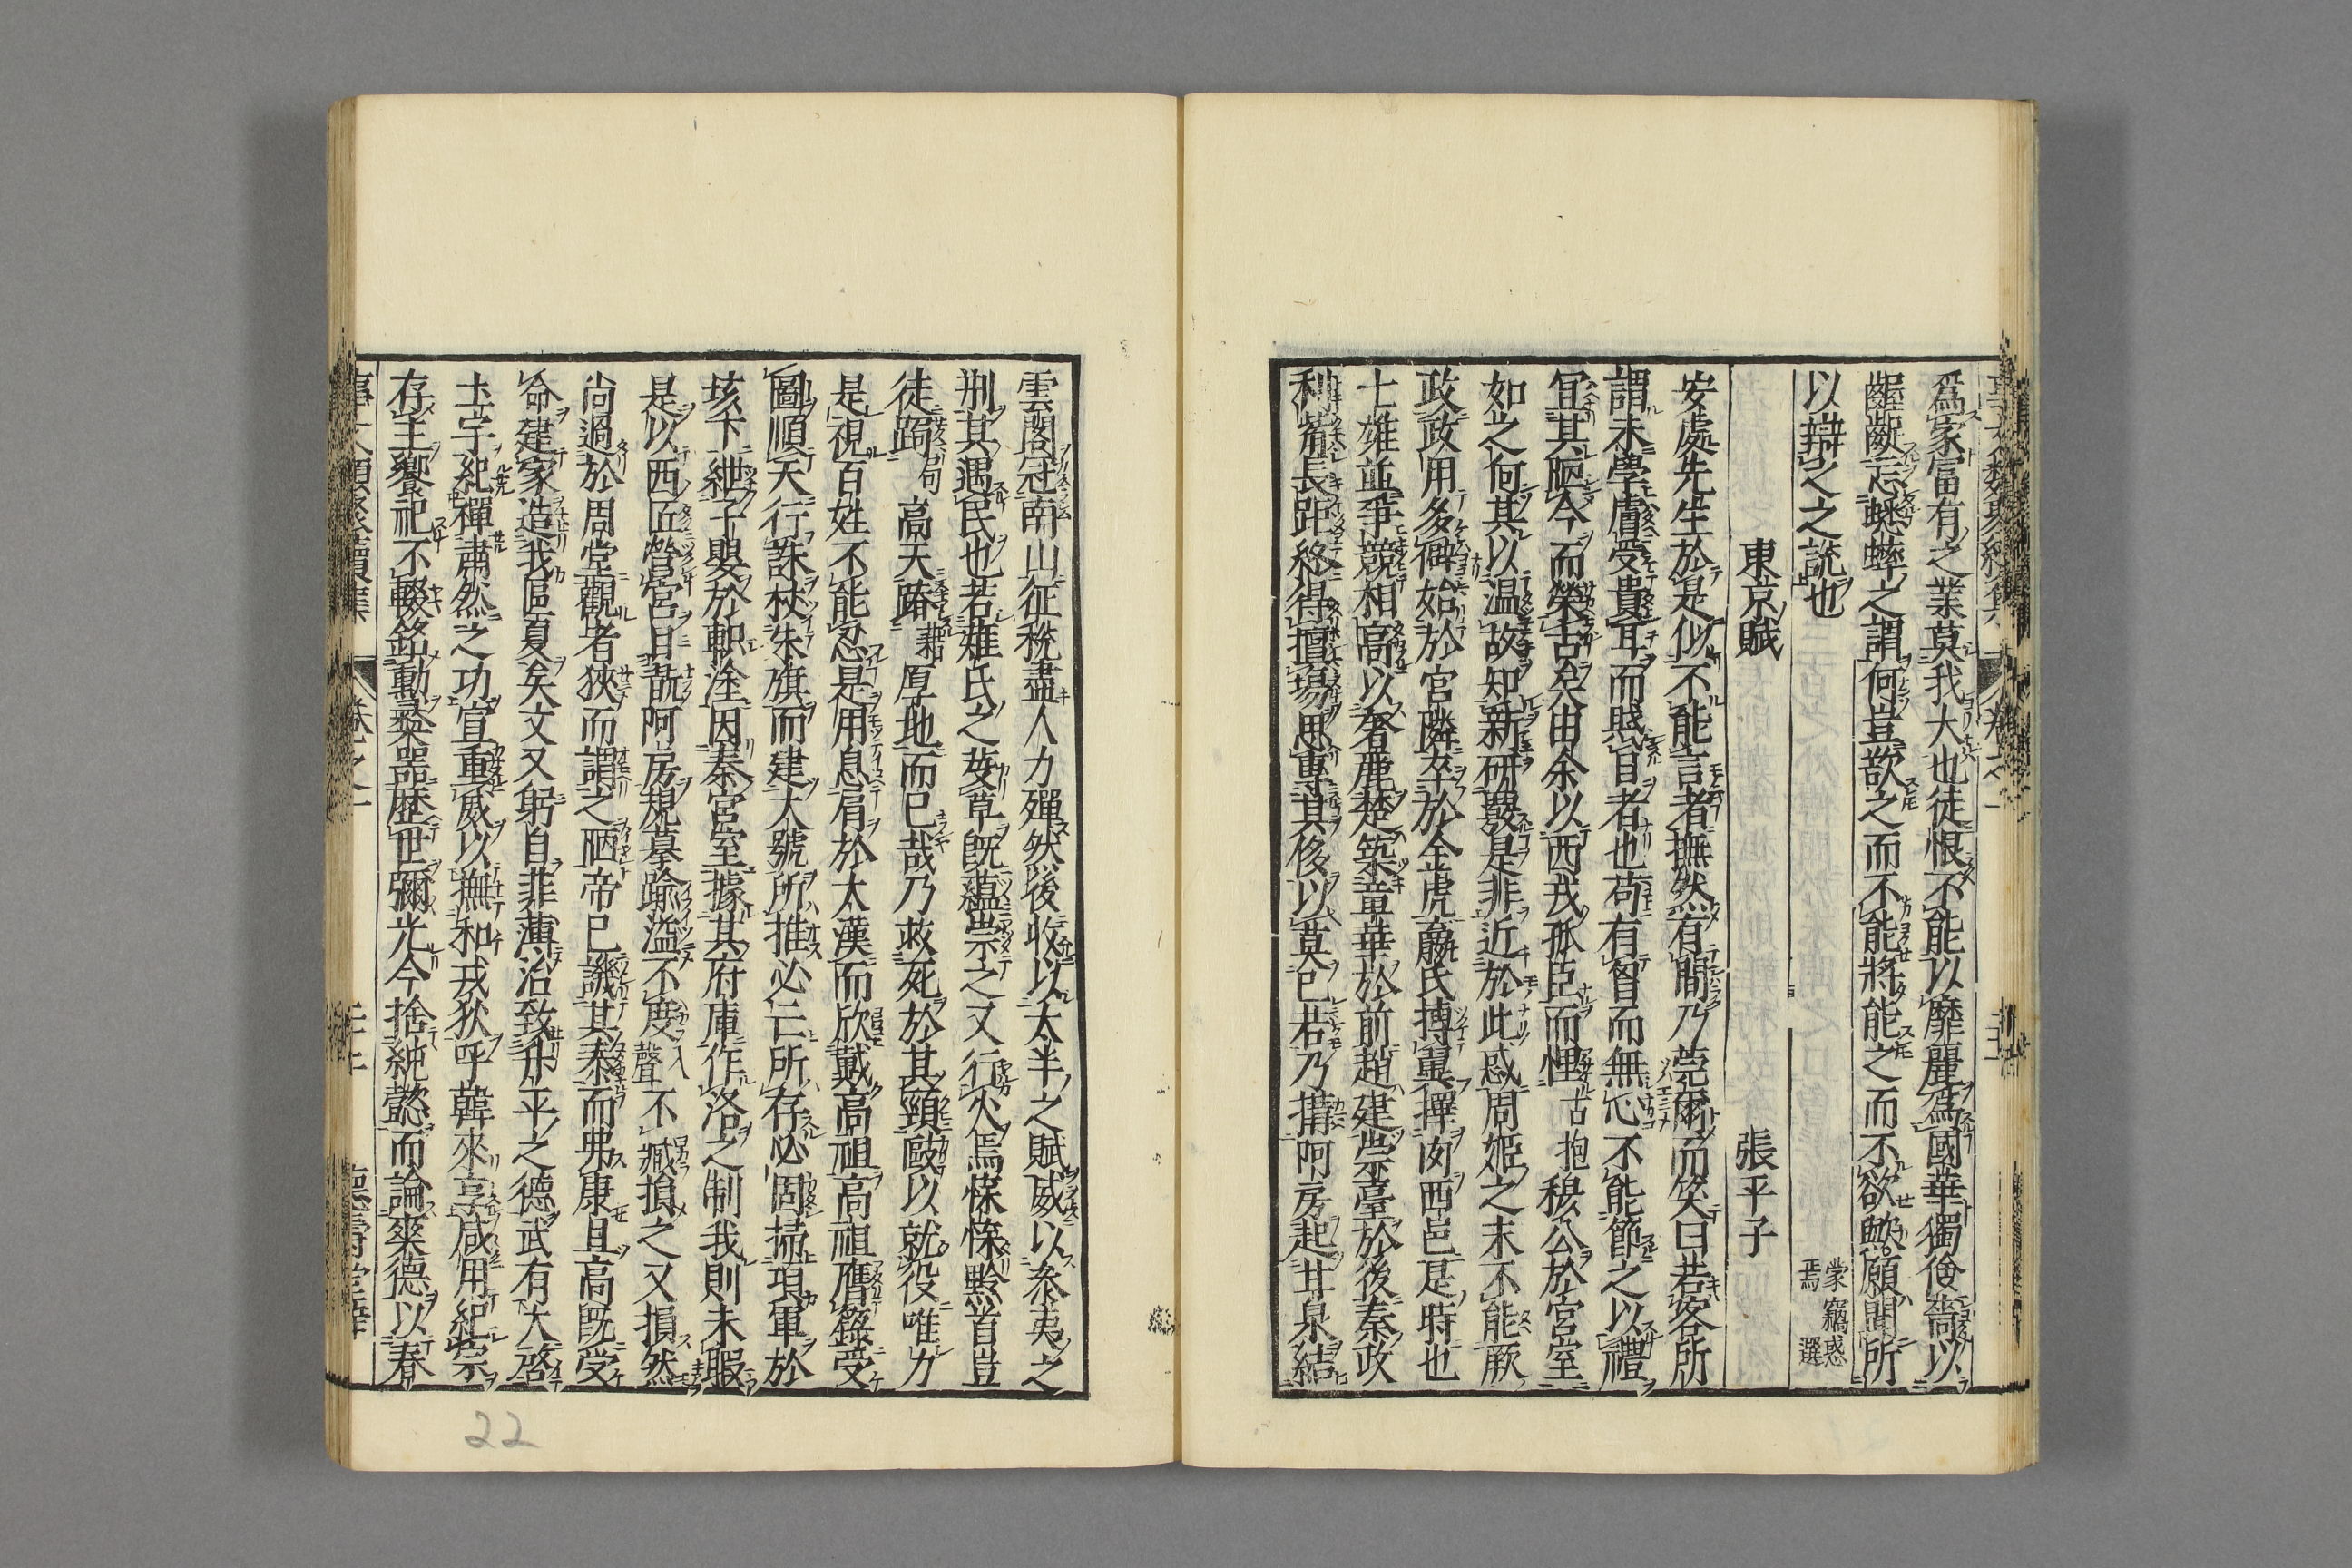 爲家富有之業莫我大也徒恨不能以靡麗爲國華獨儉嗇以
齷齪忘蟋蟀之謂何豈欲之而不能將能之而不欲歟願聞所
以辯之之說也
蒙竊惑
焉 選
東京賦 張平子
安處先生於是似不能言者撫然有間乃莞爾而笑曰若客所
謂末學膚受貴耳而賤目者也苟有胷而無心不能節之以禮
宜其陋今而榮古矣由余以西戎孤臣而悝古抱穆公於宮室
如之何其以温故知新研覈是非近於此惑周姬之末不能厥
政政用多僻始於宮鄰卒於金虎嬴氏搏翼擇肉西邑是時也
七雄並爭競相高以奢麗楚築章華於前趙建叢臺於後秦政
利觜長距終得擅場思專其侈以莫已若乃搆阿房起甘泉結
雲閣冠南山征稅盡人力殫然後收以太半之賦威以參夷之
刑其遇民也若薙氏之芟草既蘊崇之又行火焉惵惵黔首豈
徒跼句高天蹐藉厚地而已哉乃救死於其頸敺以就役唯力
是視百姓不能忍是用息肩於大漢而欣戴高祖高祖膺籙受
圖順天行誅杖朱旗而建大號所推必亡所存必固掃項軍於
垓下紲子嬰於軹塗因秦宮室據其府庫作洛之制我則未暇
是以西匠營宮目翫阿房規摹踰溢不度入聲不臧損之又損然
尚過於周堂觀者狹而謂之陋帝已譏其泰而弗康且高既受
命建家造我區夏矣文又躬自菲薄治致升平之德武有大啓
土宇紀禪肅然之功宣重威以撫和戎狄呼韓來享咸用紀宗
存主饗祀不輟銘勳彝器歷世彌光今捨純懿而論爽德以春
卷之一
22